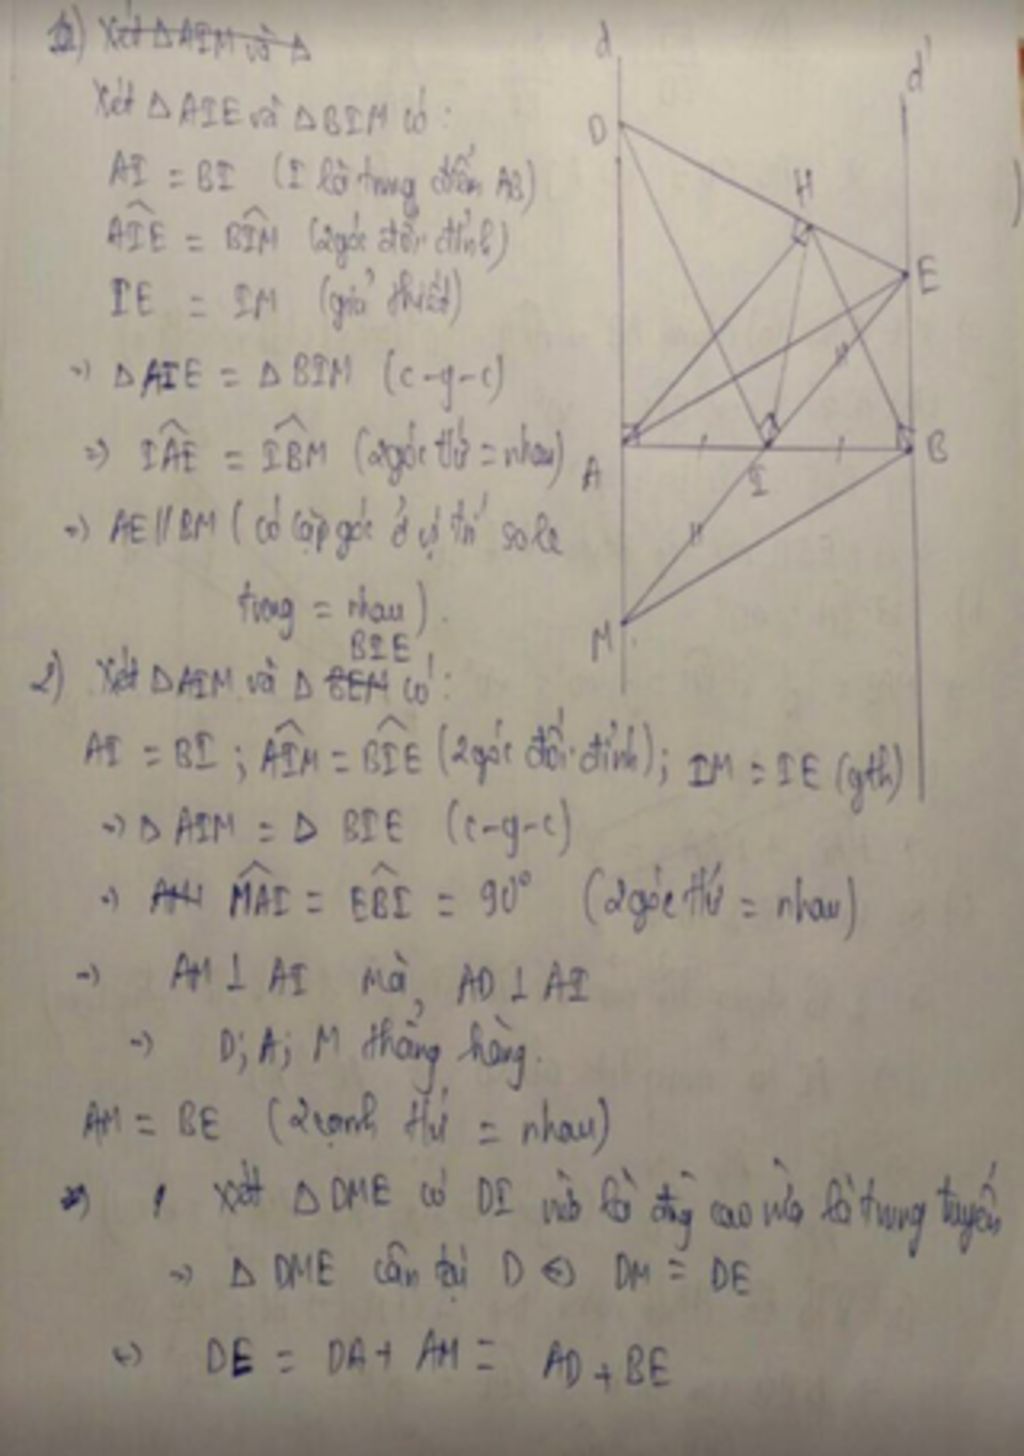 1) Xét ΔAIM và Δ
Xét ΔAIE và ΔBIM có:
AI = BI (I là trung điểm AB)
AÎE = BÎM (2 góc đối đỉnh)
IE = IM (giả thiết)
=> ΔAIE = ΔBIM (c-g-c)
=> IÂE = IB̂M (2 góc tứ = nhau)
=> AE // BM (có cặp góc ở vị trí so le
trong = nhau).
BIE
2) Xét ΔAIM và Δ BEM có:
AI = BI; AÎM = BÎE (2 góc đối đỉnh); IM = IE (gth)
=> Δ AIM = Δ BIE (c-g-c)
=> MÂI = EB̂I = 90° (2 góc tứ = nhau)
=> AM ⊥ AI mà, AD ⊥ AI
=> D; A; M thẳng hàng.
AM = BE (2 cạnh tứ = nhau)
Xét Δ DME có DI vừa là đg cao vừa là trung tuyến
=> Δ DME cân tại D <=> DM = DE
<=> DE = DA + AM = AD + BE
d
d'
D
H
E
A
I
B
M